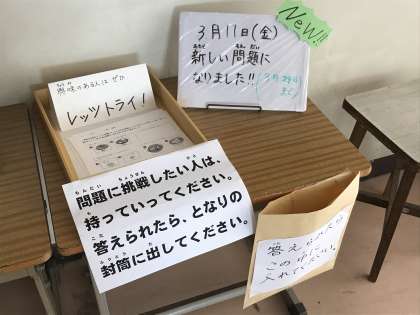 興味のある人は ぜひ
レッツトライ!
3月11日(金)
新しい問題に
なりました!!
New!!
問題に挑戦したい人は、
持っていってください。
答えられたら、となりの
封筒に出してください。
答えられたら
この中に
入れてください。